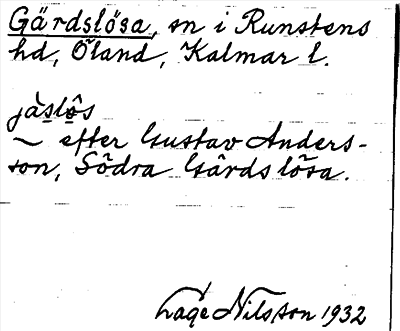 Gärdslösa, sn i Runstens
hd, Öland, Kalmar l.
jàslôs
~ efter Gustav Anders-
son, Södra Gärdslösa.
Lage Nilsson 1932